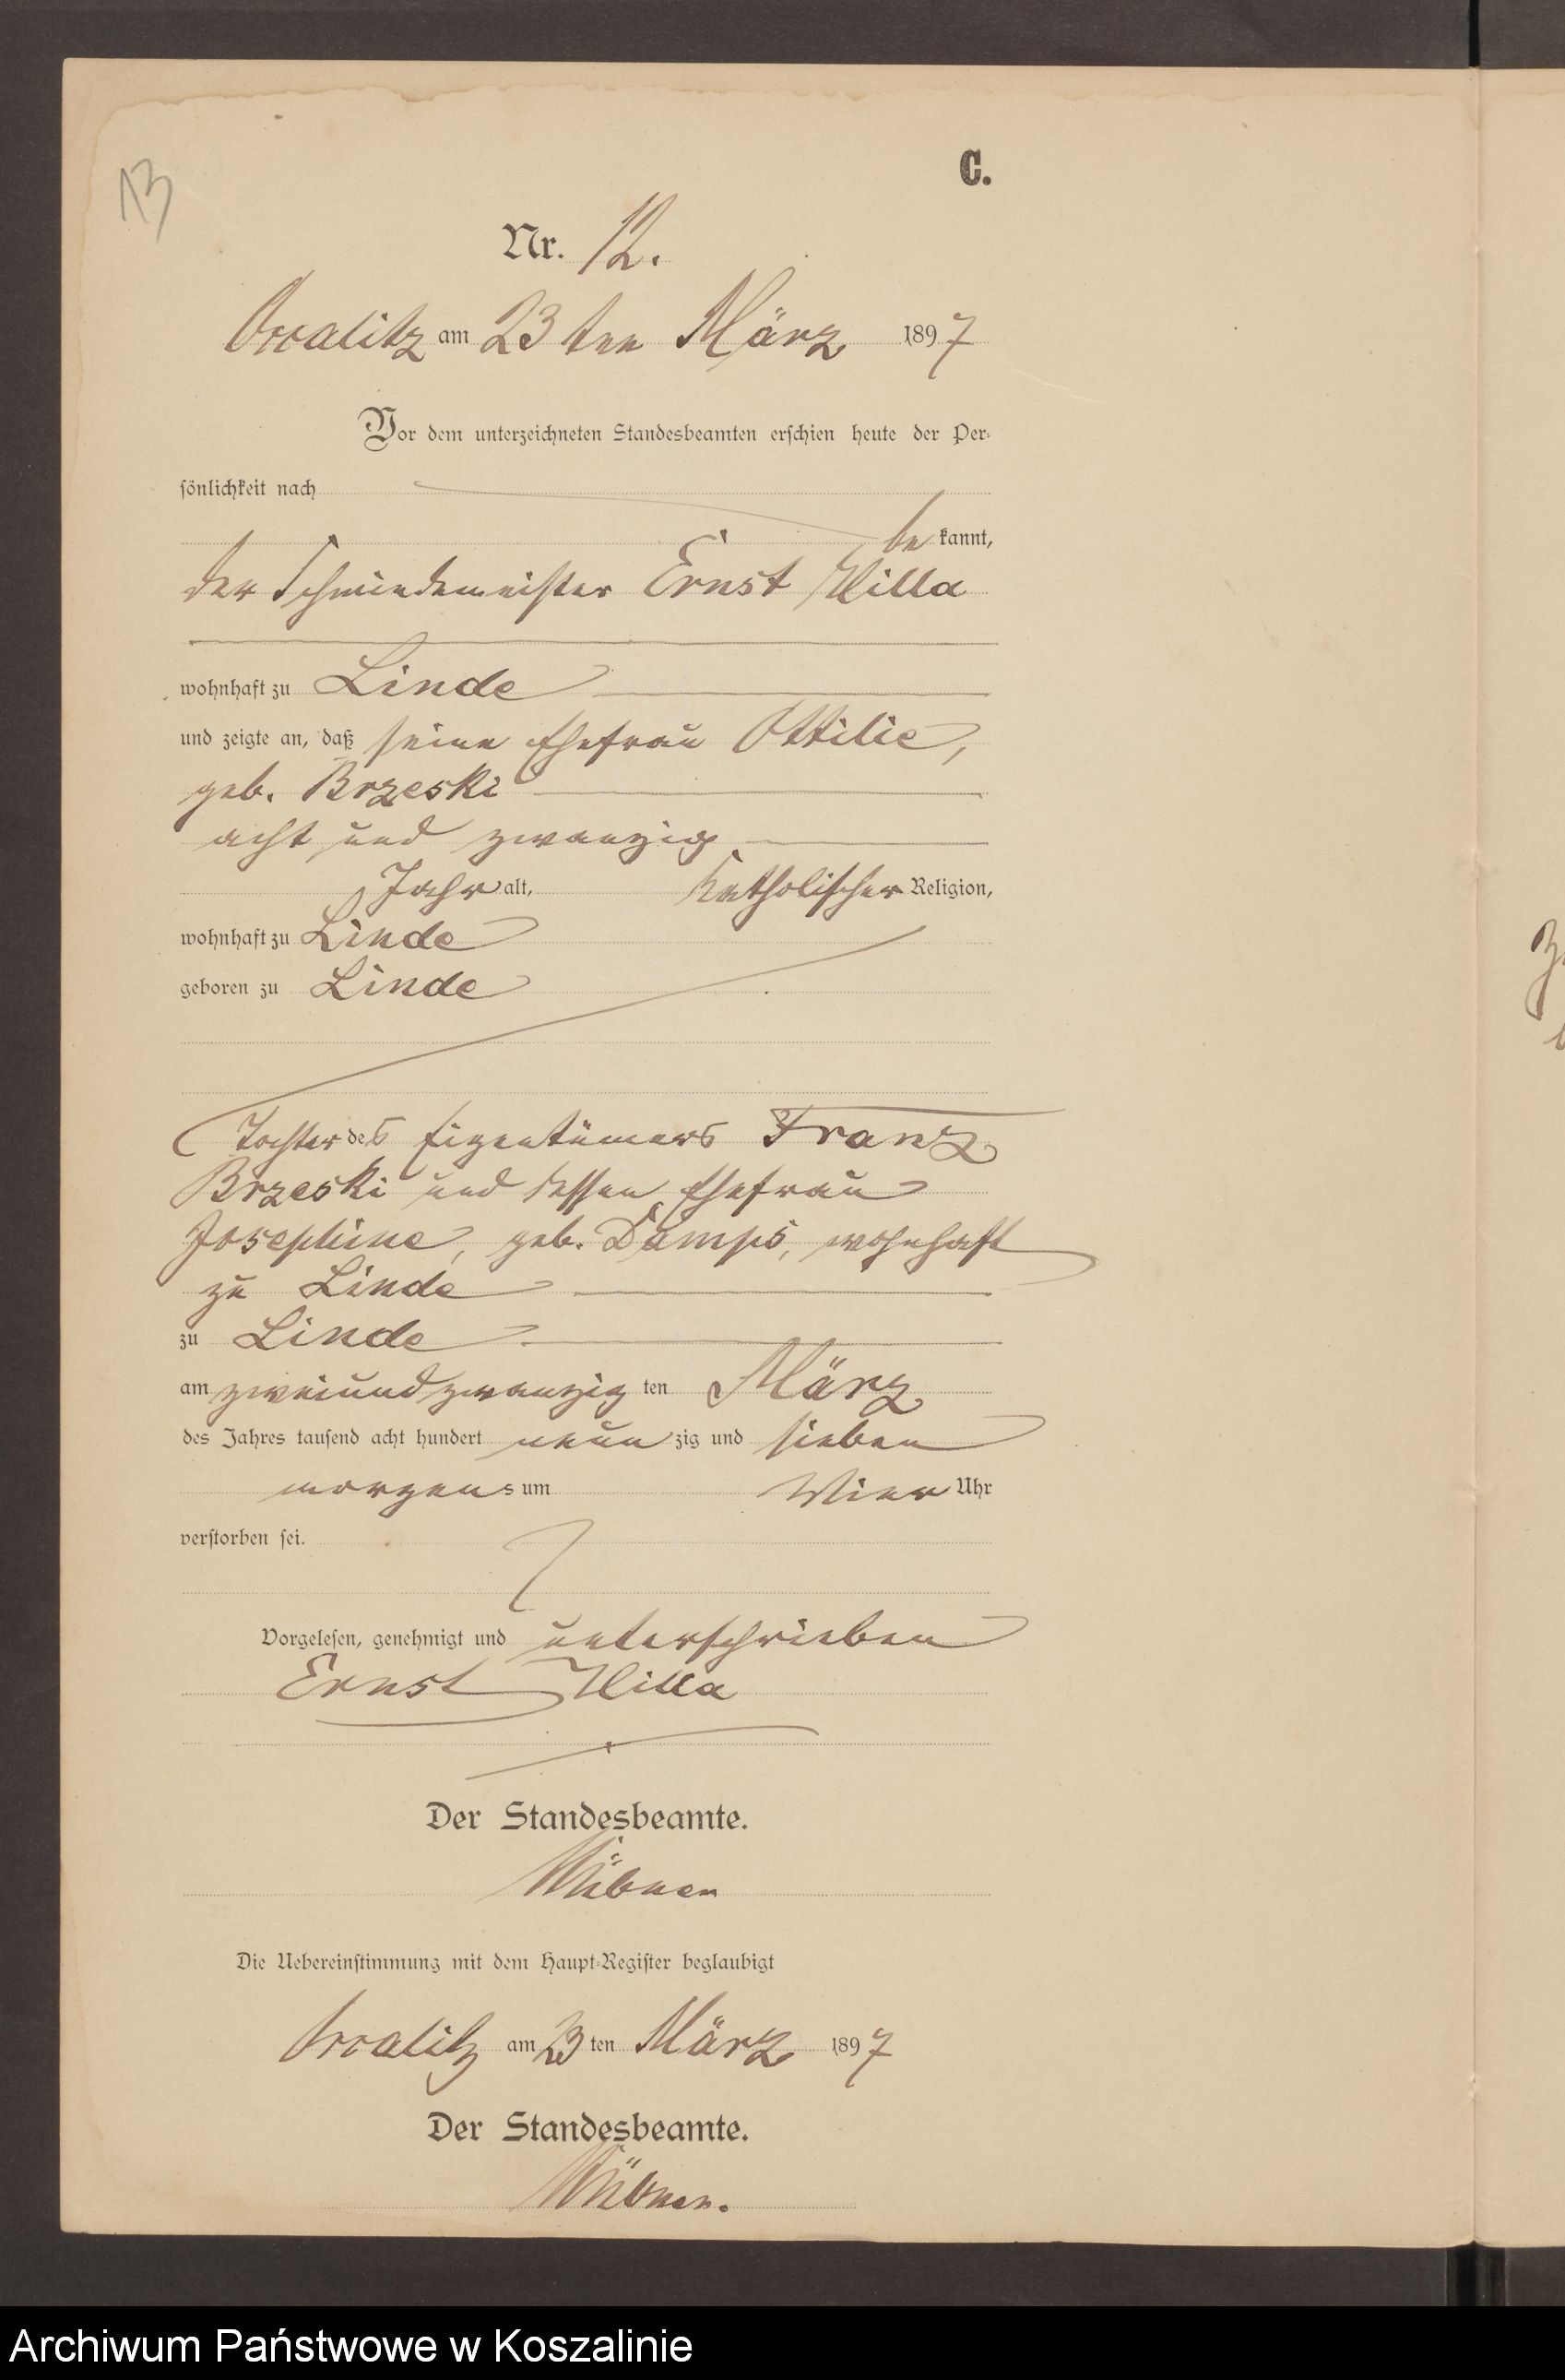 13
C.
Nr. 12.
am 23 ten März 1897
Vor dem unterzeichneten Standesbeamten erschien heute der Per-
sönlichkeit nach
be kannt,
der Schmiedemeister Ernst Hilla
wohnhaft zu Linde
und zeigte an, daß seine Ehefrau Ottilie,
geb. Brzeski
acht und zwanzig
Jahr alt, katholischer Religion,
wohnhaft zu Linde
geboren zu Linde
Tochter des Eigentümers Franz
Brzeski und dessen Ehefrau
Josephine, geb. Damps, wohnhaft
zu Linde
zu Linde
am zweiundzwanzig ten März
des Jahres tausend acht hundert neun zig und sieben
morgens um Vier Uhr
verstorben sei.
Vorgelesen, genehmigt und unterschrieben
Ernst Hilla
Der Standesbeamte.
Die Uebereinstimmung mit dem Haupt-Register beglaubigt
am 23 ten März 1897
Der Standesbeamte.
Archiwum Państwowe w Koszalinie